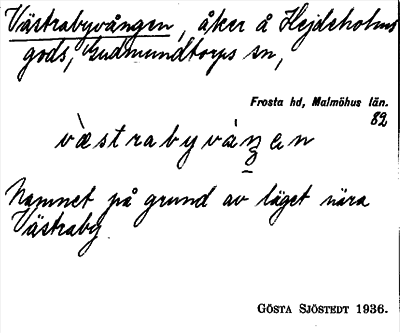 Västrabyvången, åker å Hejdeholms
gods, Gudmundtorps sn,
Frosta hd, Malmöhus län.
82
Namnet på grund av läget nära
Västraby.
GÖSTA SJÖSTEDT 1936.